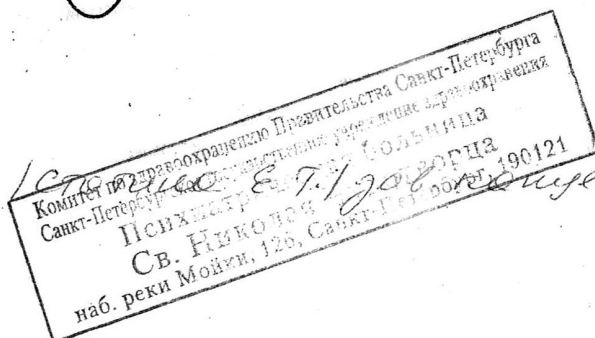 Комитет по здравоохранению Правительства Санкт-Петербурга
Санкт-Петербургское государственное учреждение здравоохранения
Психиатрическая больница
Св. Николая Чудотворца
наб. реки Мойки, 126, Санкт-Петербург, 190121
Е.Т.